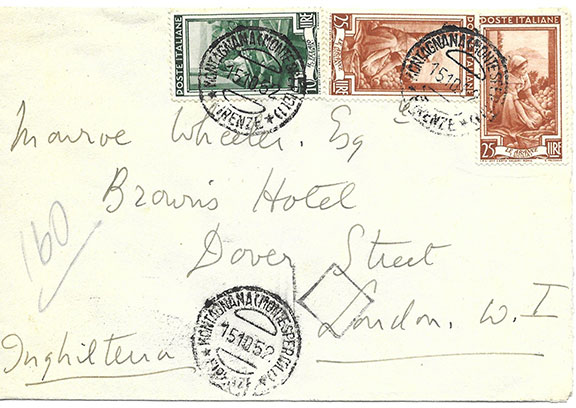 POSTE ITALIANE
10 LIRE
25 LIRE POSTE ITALIANE
POSTE ITALIANE
25 LIRE
MONTAGNANA (MONTESPERTOLI) FIRENZE
15.10.52
MONTAGNANA (MONTESPERTOLI) FIRENZE
15.10.52
Monroe Wheeler, Esq
Brown's Hotel
Dover Street
London. W. I
Inghilterra
160
MONTAGNANA (MONTESPERTOLI) FIRENZE
15.10.52